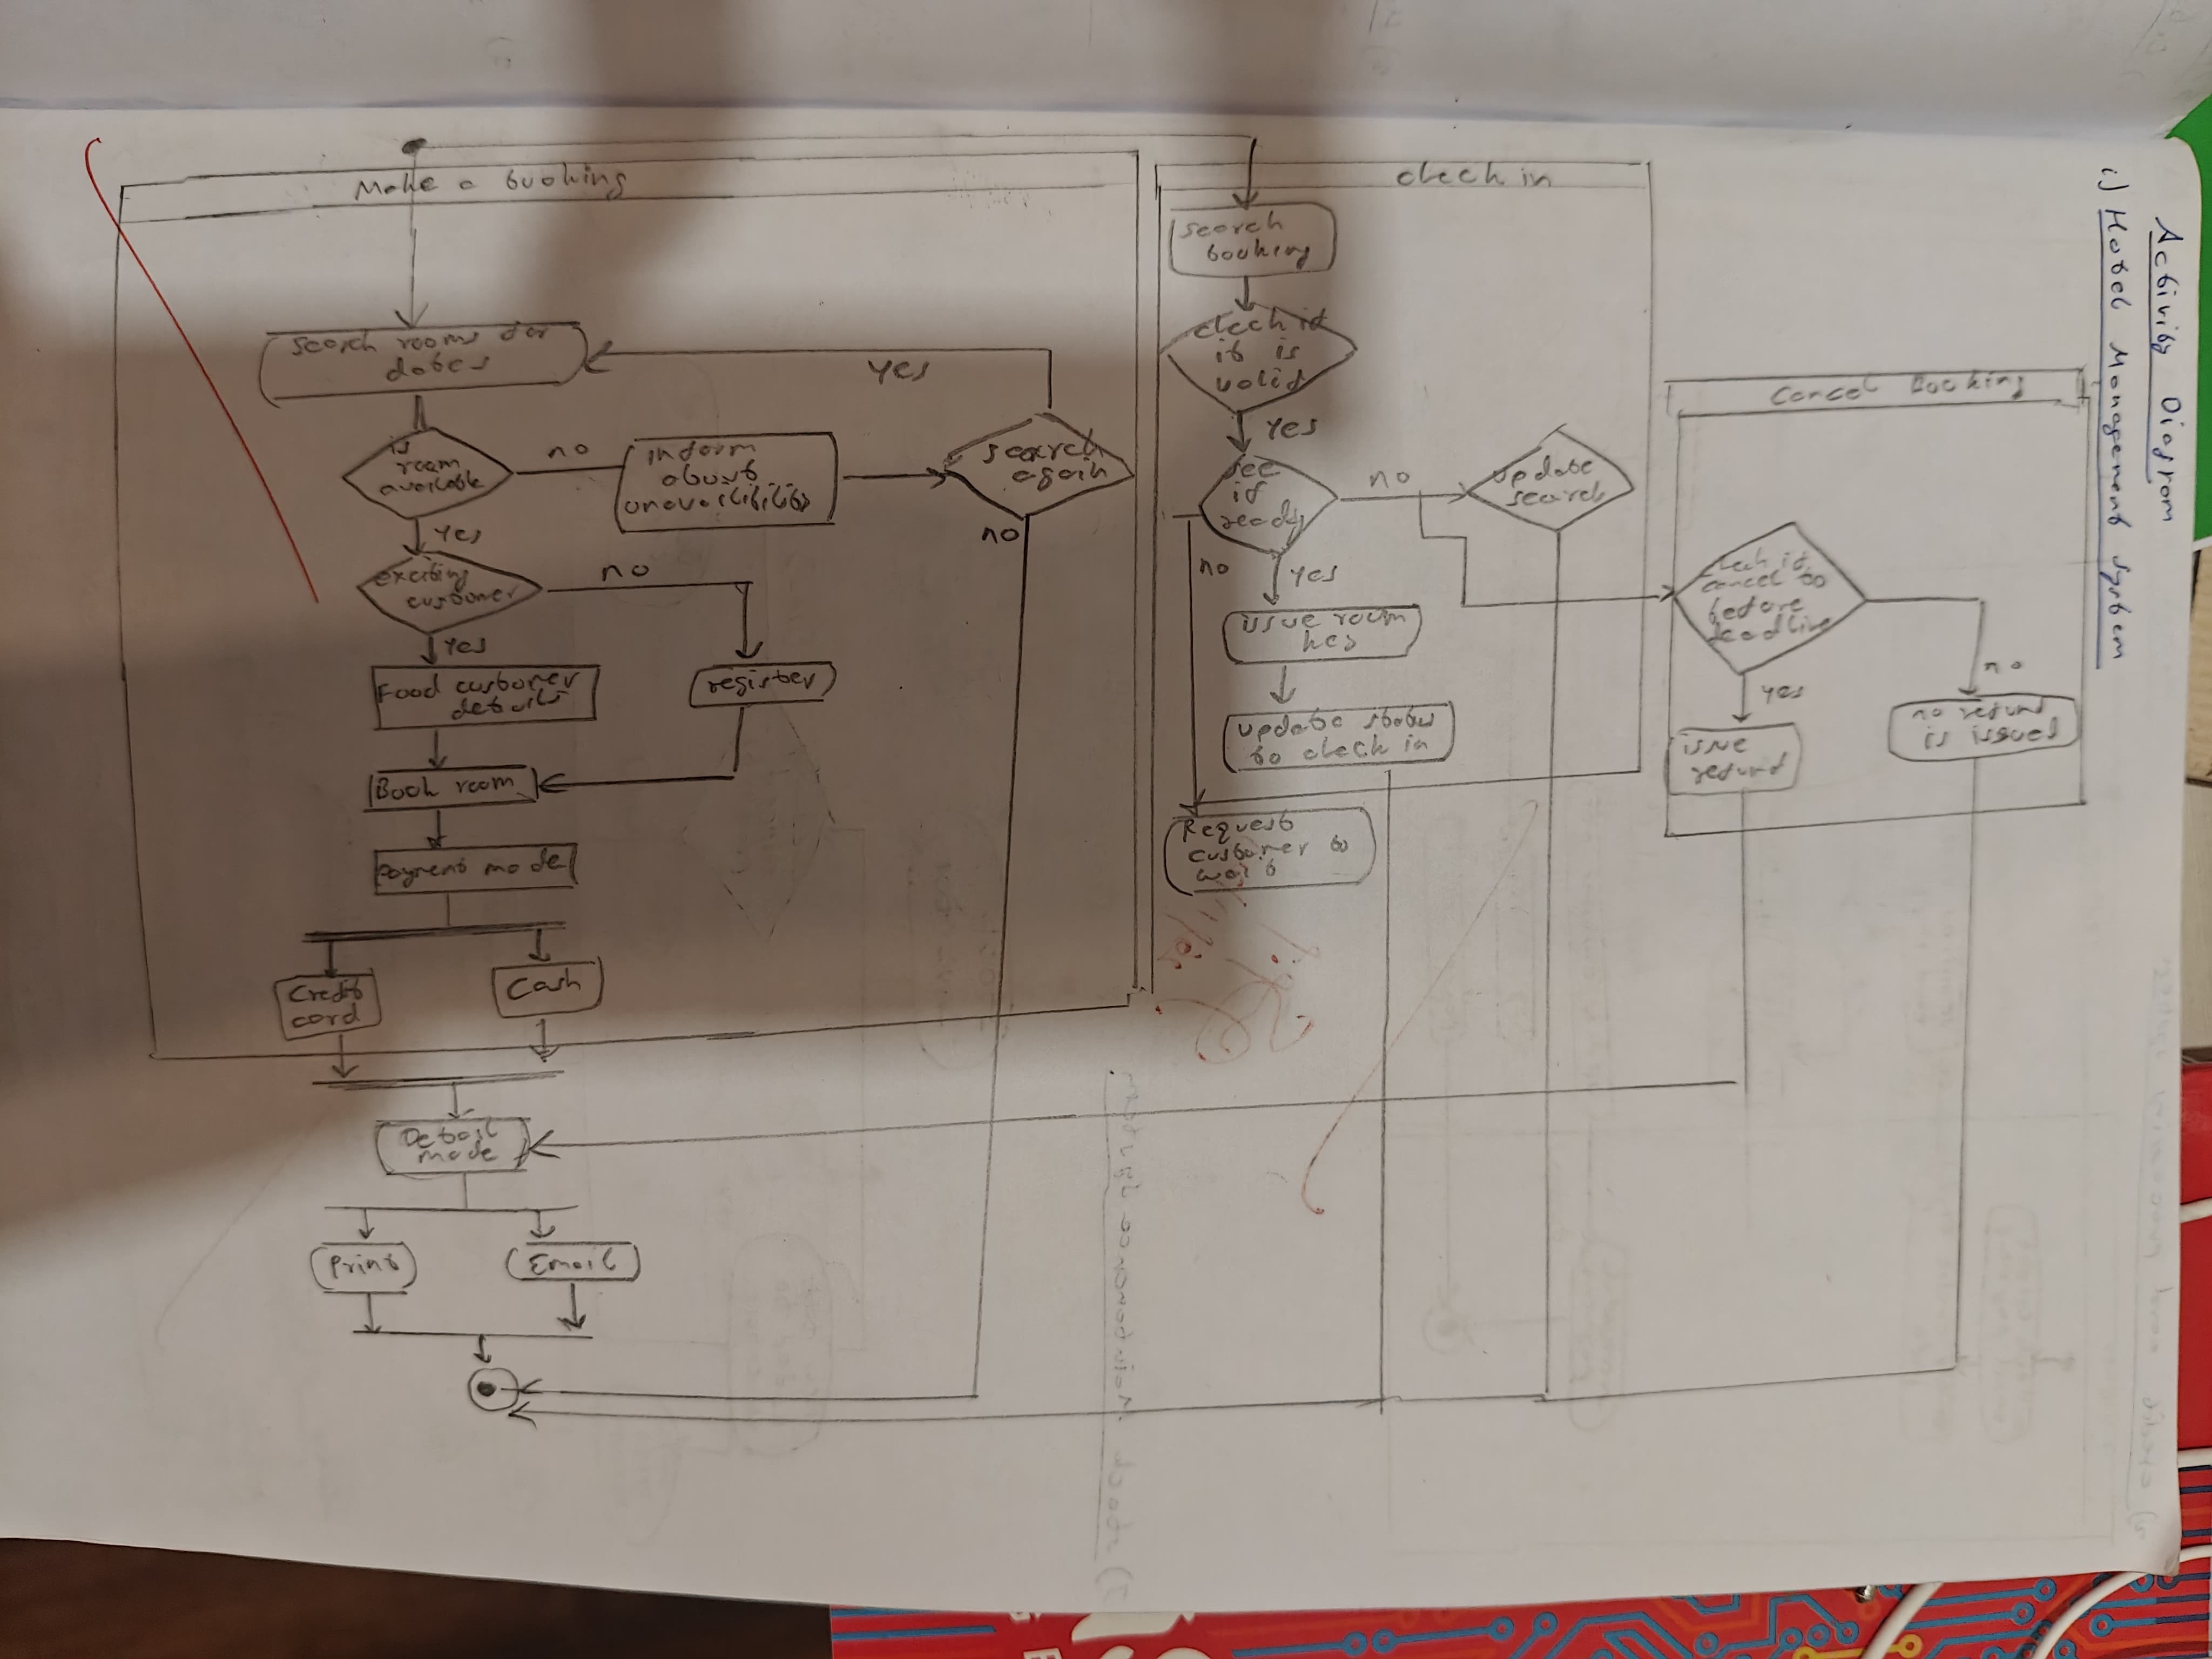 Activity Diagrom
i) Hotel Monogement System
Make a booking
Search rooms for
dates
is
room
available
no
inform
about
unavailibility
search
again
yes
no
yes
exciting
customer
no
register
yes
Food customer
details
Book room
payment mode
Credit
card
Cash
Detail
mode
Print
Email
check in
search
booking
check if
it is
valid
yes
see
if
ready
no
update
search
no
yes
issue room
key
update status
to check in
Request
customer to
wait
Cancel Booking
check if
cancel to
before
deadline
no
yes
issue
refund
no refund
is issued